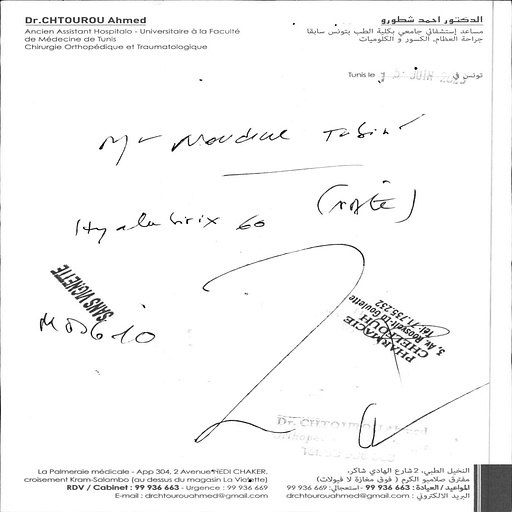 Dr.CHTOUROU Ahmed
Ancien Assistant Hospitalo - Universitaire à la Faculté
de Médecine de Tunis
Chirurgie Orthopédique et Traumatologique
الدكتور احمد شطورو
مساعد إستشفائي جامعي بكلية الطب بتونس سابقا
جراحة العظام، الكسور و الكلوميات
Tunis le تونس في
JUIN
Mr
Hyalubrix 60
SANS VIGNETTE
PHARMACIE
CHELOUH
3, Av. Roosvelt-La Goulette
Tél: 71.735.232
Dr. CHTOUROU Ahmed
La Palmeraie médicale - App 304, 2 Avenue HEDI CHAKER,
croisement Kram-Salambo (au dessus du magasin La Violette)
RDV / Cabinet : 99 936 663 - Urgence : 99 936 669
E-mail : drchtourouahmed@gmail.com
النخيل الطبي، 2 شارع الهادي شاكر،
مفترق صلامبو الكرم ( فوق مغازة لا فيولات)
المواعيد / العيادة : 663 936 99 - استعجالي: 669 936 99
البريد الالكتروني : drchtourouahmed@gmail.com